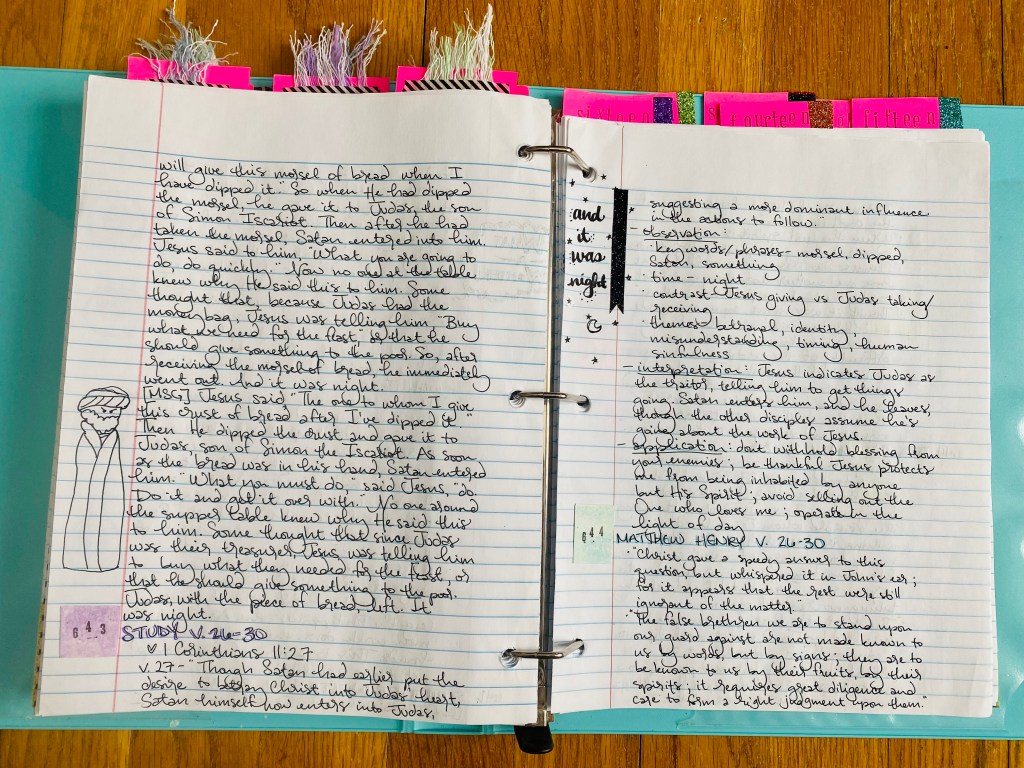 sixteen
fourteen
fifteen
will give this morsel of bread when I
have dipped it." So when He had dipped
the morsel, he gave it to Judas, the son
of Simon Iscariot. Then after he had
taken the morsel, Satan entered into him.
Jesus said to him, "What you are going to
do, do quickly." Now no one at the table
knew why He said this to him. Some
thought that, because Judas had the
moneybag, Jesus was telling him, "Buy
what we need for the feast," or that he
should give something to the poor. So, after
receiving the morsel of bread, he immediately
went out. And it was night.
[MSG] Jesus said, "The one to whom I give
this crust of bread after I've dipped it."
Then He dipped the crust and gave it to
Judas, son of Simon the Iscariot. As soon
as the bread was in his hand, Satan entered
him. "What you must do," said Jesus, "do.
Do it and get it over with." No one around
the supper table knew why He said this
to him. Some thought that since Judas
was their treasurer, Jesus was telling him
to buy what they needed for the feast, or
that he should give something to the poor.
Judas, with the piece of bread, left. It
was night.
643
STUDY V. 26-30
1 Corinthians 11:27
v. 27- "Though Satan had earlier put the
desire to betray Christ into Judas' heart,
Satan himself now enters into Judas,
and
it
was
night
suggesting a more dominant influence
in the actions to follow.
- observation:
· key words/phrases- morsel, dipped,
Satan, something
· time- night
· contrast- Jesus giving vs Judas taking/
receiving
· themes: betrayal, identity,
misunderstanding, timing, human
sinfulness
- interpretation: Jesus indicates Judas as
the traitor, telling him to get things
going. Satan enters him, and he leaves,
though the other disciples assume he's
going about the work of Jesus.
- application: don't withhold blessing from
your enemies; be thankful Jesus protects
me from being inhabited by anyone
but His Spirit; avoid selling out the
One who loves me; operate in the
light of day
644
MATTHEW HENRY V. 26-30
· "Christ gave a speedy answer to this
question, but whispered it in John's ear;
for it appears that the rest were still
ignorant of the matter."
· "The false brethren we are to stand upon
our guard against are not made known to
us by words, but by signs; they are to
be known to us by their fruits, by their
spirits; it requires great diligence and
care to form a right judgment upon them."